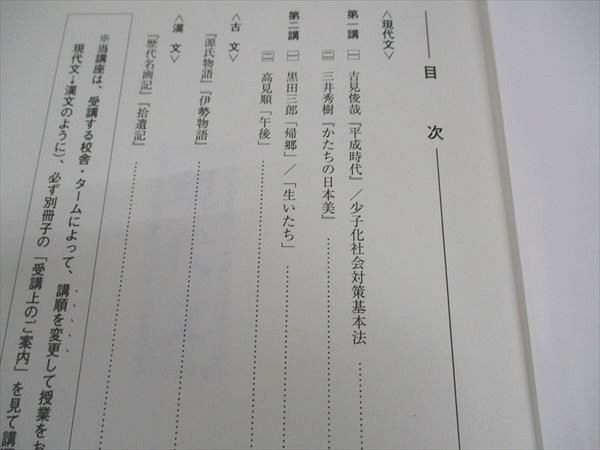 目 次
〈現代文〉
第一講 ㈠ 吉見俊哉『平成時代』／少子化社会対策基本法
㈡ 三井秀樹『かたちの日本美』
第二講 ㈠ 黒田三郎「帰郷」／「生いたち」
㈡ 高見順「午後」
〈古 文〉
『源氏物語』『伊勢物語』
〈漢 文〉
『歴代名画記』『拾遺記』
※当講座は、受講する校舎・タームによって、講順を変更して授業をお
現代文→漢文のように)、必ず別冊子の「受講上のご案内」を見て講